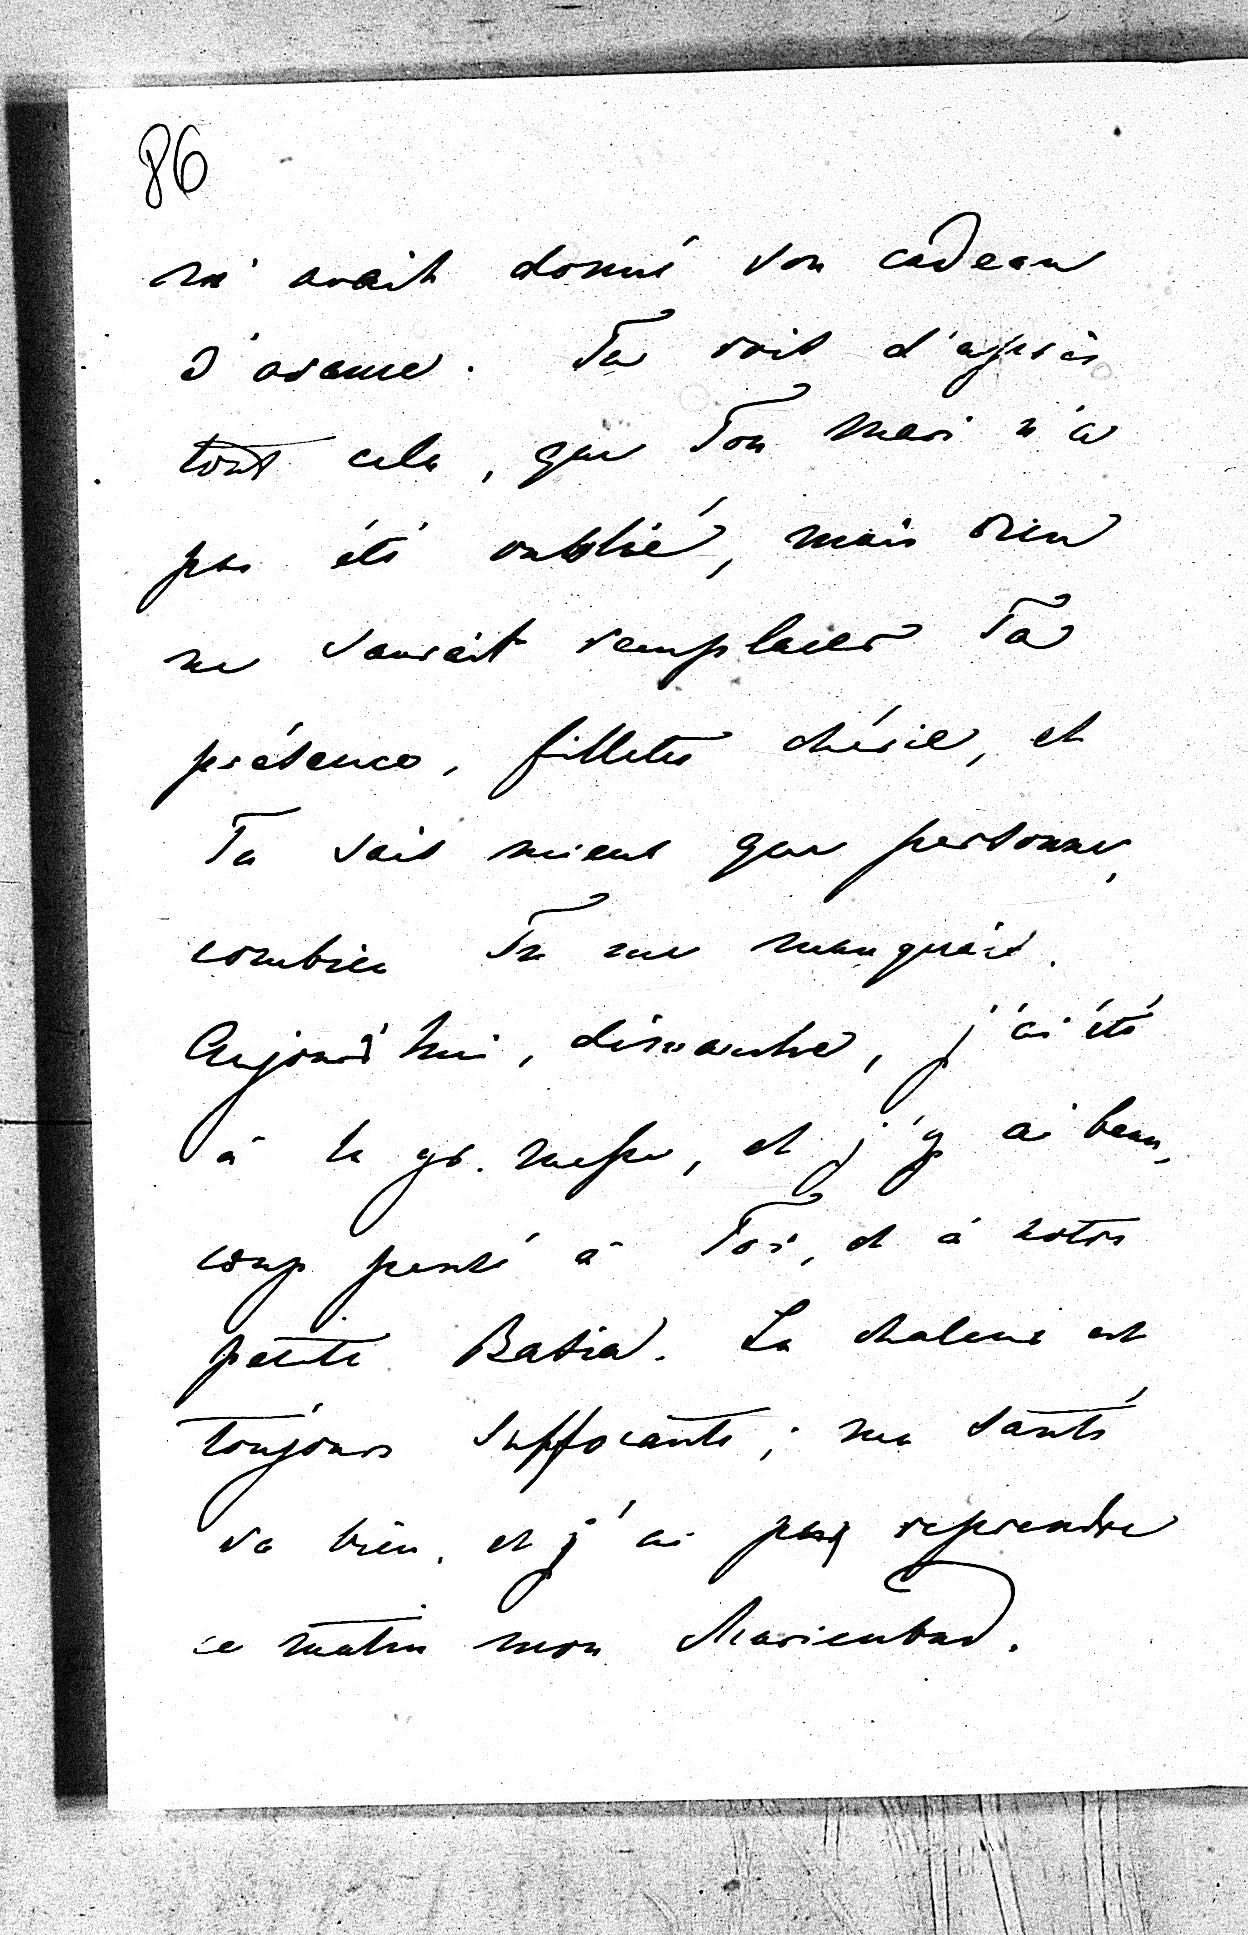 86
m'avait donné son cadeau
d'avance. Tu vois d'après
tout cela, que Ton mari n'a
pas été oublié, mais rien
ne saurait remplacer Ta
présence, fillette chérie, et
Tu sais mieux que personne,
combien Tu me manquais.
Aujourd'hui, dimanche, j'ai été
à la gr. messe, et j'y ai beau-
coup pensé à Toi, et à notre
petite Basia. La chaleur est
toujours suffocante; ma santé
va bien, et j'ai pu reprendre
ce matin mon Marienbad.